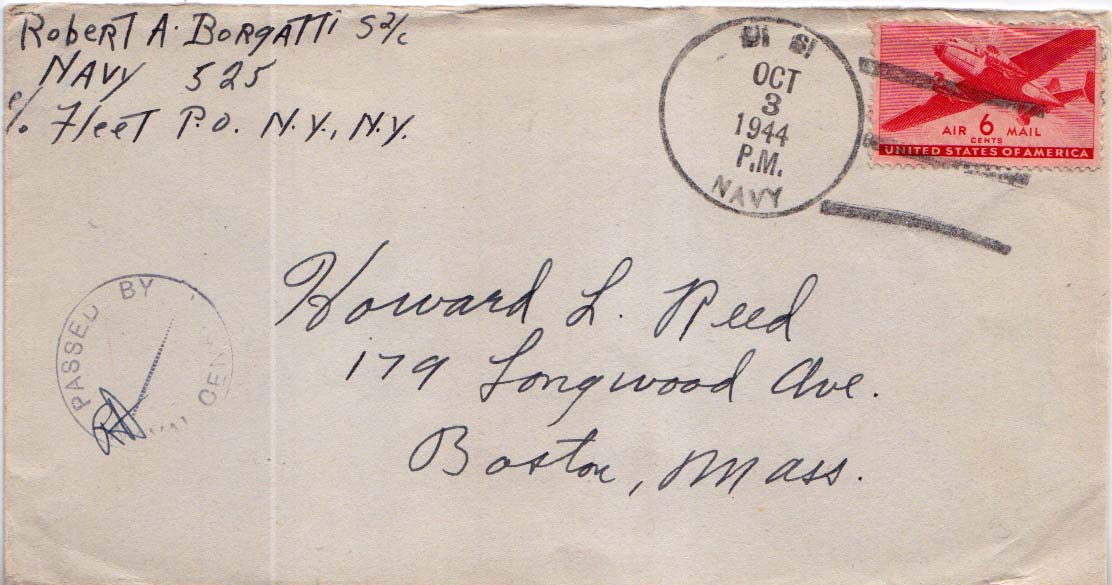 Robert A. Borgatti S2/c
Navy 525
c/o Fleet P.O. N.Y., N.Y.
U. S.
OCT
3
1944
P.M.
NAVY
AIR 6 MAIL
CENTS
UNITED STATES OF AMERICA
PASSED BY
Howard L. Reed
179 Longwood Ave.
Boston, Mass.